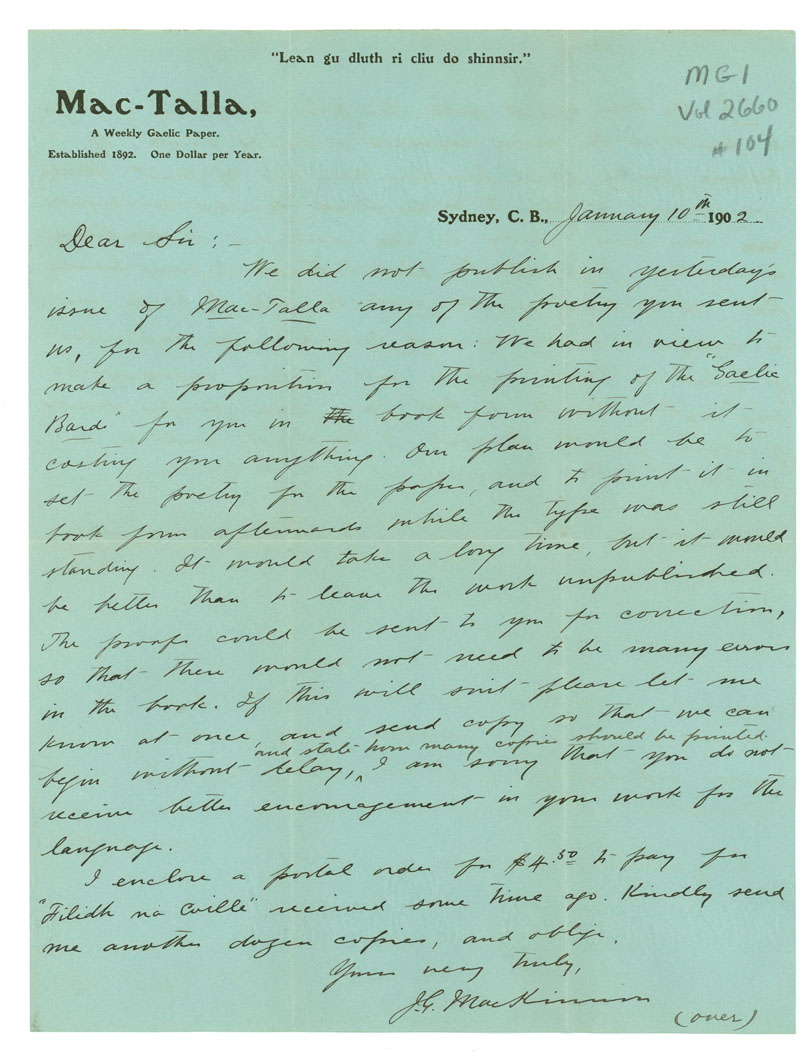 "Lean gu dluth ri cliu do shinnsir."
Mac-Talla,
A Weekly Gaelic Paper.
Established 1892. One Dollar per Year.
MG1
Vol 2660
#104
Sydney, C. B., January 10th 1902
Dear Sir:-
We did not publish in yesterday's
issue of Mac-Talla any of the poetry you sent
us, for the following reason: We had in view to
make a proposition for the printing of the "Gaelic
Bards" for you in the book form without it
costing you anything. Our plan would be to
set the poetry for the paper, and to print it in
book form afterwards while the type was still
standing. It would take a long time, but it would
be better than to leave the work unpublished.
The proofs could be sent to you for correction,
so that there would not need to be many errors
in the book. If this will suit please let me
know at once, and send copy so that we can
and state how many copies should be printed.
begin without delay, ^ I am sorry that you do not
receive better encouragement in your work for the
language.
I enclose a postal order for $4.50 to pay for
"Filidh na Coille" received some time ago. Kindly send
me another dozen copies, and oblige,
Yours very truly,
J.G. MacKinnon
(over)